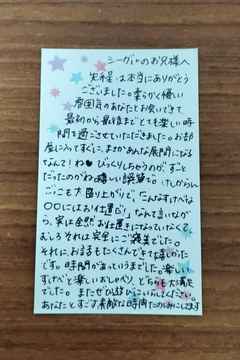 シーガルのお兄様へ
先程は本当にありがとう
ございました。柔らかく優しい
雰囲気のあなたとお会いできて
最初から最後までとても楽しい時
間を過ごさせていただきました。お部
屋に入ってすぐに、まさかあんな展開になる
なんて！ね♥びっくりしちゃうのが、ずっと
だったのがね 嬉しい誤算♡。けしからん
ごっこも大盛り上がりで、こんなすけべな
〇〇にはお仕置き！なんて言いなが
ら、実は全然お仕置きになっていなくて、
むしろそれは完全にご褒美でした。
それに、おまるもたくさんできて嬉しかった
です。時間があっというまでした。楽しい
すけべと楽しいおしゃべり、どちらも大満足
でした。またぜひ遊びにいらしてください。
あなたとすごす素敵な時間たのしみにしてます